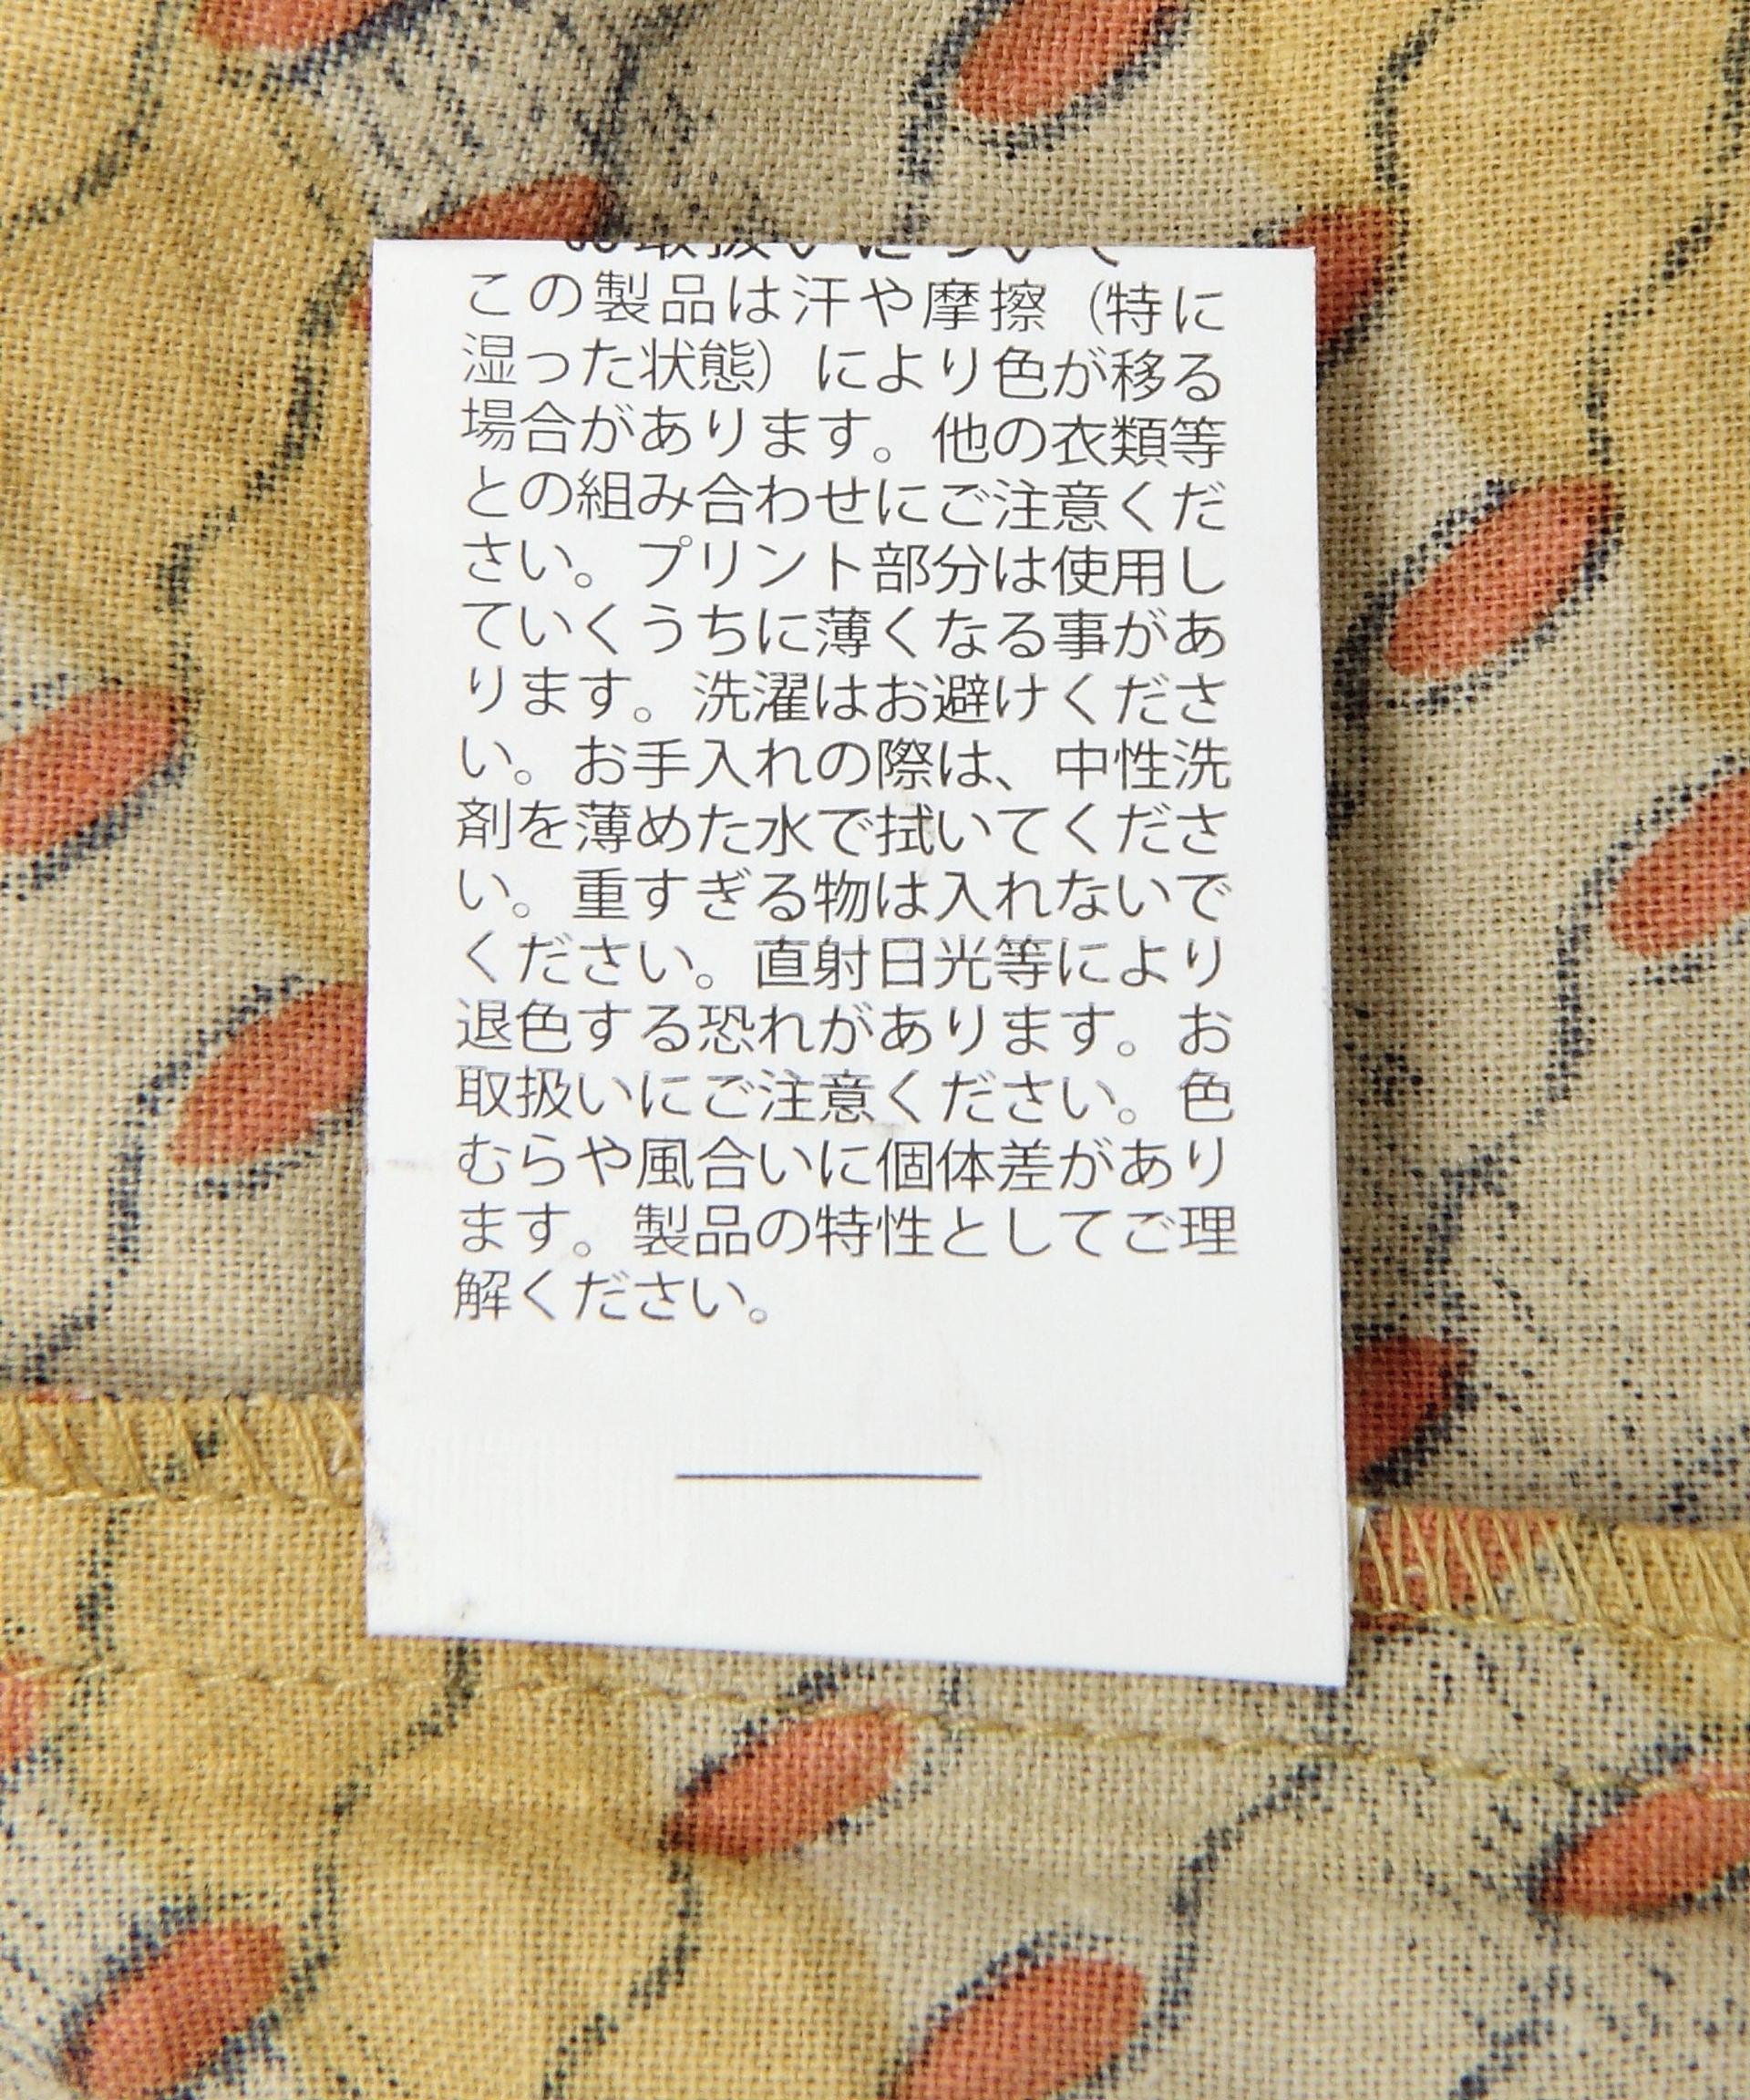 お取扱いについて
この製品は汗や摩擦（特に
湿った状態）により色が移る
場合があります。他の衣類等
との組み合わせにご注意くだ
さい。プリント部分は使用し
ていくうちに薄くなる事があ
ります。洗濯はお避けくださ
い。お手入れの際は、中性洗
剤を薄めた水で拭いてくださ
い。重すぎる物は入れないで
ください。直射日光等により
退色する恐れがあります。お
取扱いにご注意ください。色
むらや風合いに個体差があり
ます。製品の特性としてご理
解ください。